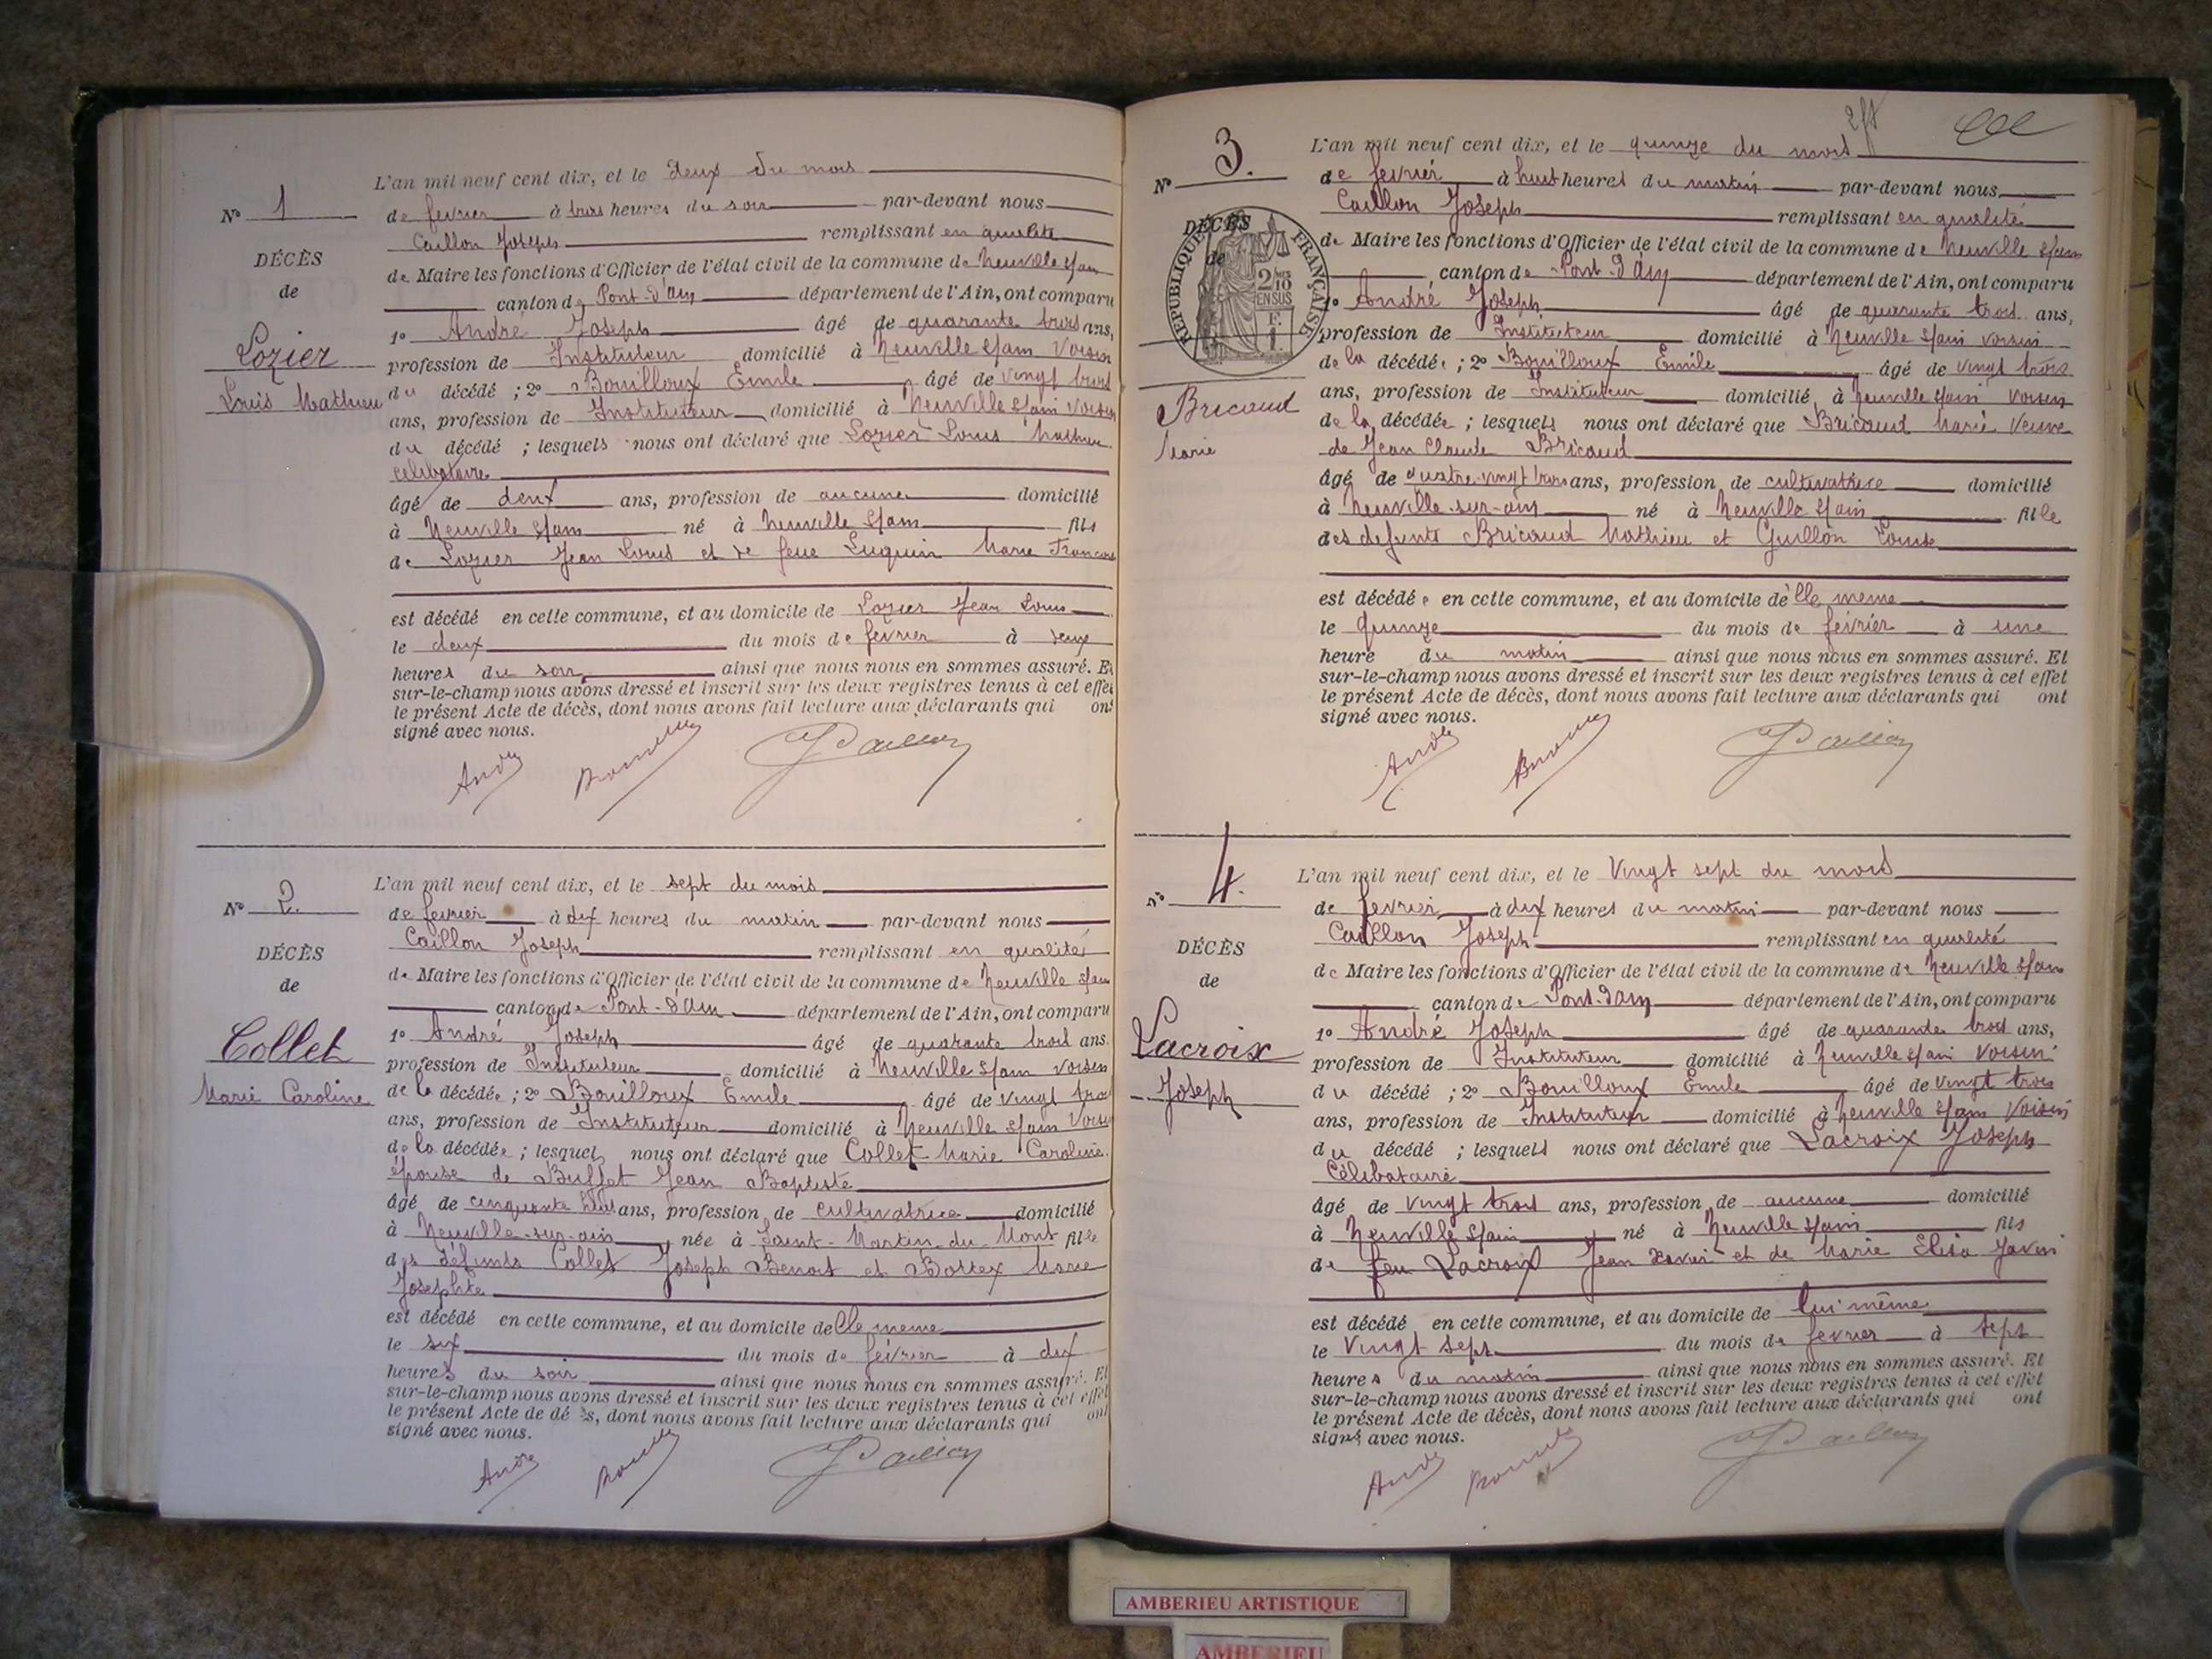 N° 1
DÉCÈS
de
Lozier
Louis Mathieu
L'an mil neuf cent dix, et le deux du mois
de fevrier à trois heures du soir par-devant nous
Caillon Joseph remplissant en qualité
de Maire les fonctions d'Officier de l'état civil de la commune de Neuville s/ain
canton de Pont-d'Ain département de l'Ain, ont comparu
1° André Joseph âgé de quarante trois ans,
profession de Instituteur domicilié à Neuville s/ain voisin
du décédé ; 2° Bouilloux Emile âgé de vingt trois
ans, profession de Instituteur domicilié à Neuville s/ain voisin
du décédé ; lesquels nous ont déclaré que Lozier Louis Mathieu
celibataire
âgé de deux ans, profession de aucune domicilié
à Neuville s/ain né à Neuville s/ain fils
de Lozier Jean Louis et de feue Luquin Marie
est décédé en cette commune, et au domicile de Lozier Jean Louis
le deux du mois de février à deux
heures du soir ainsi que nous nous en sommes assuré. Et
sur-le-champ nous avons dressé et inscrit sur les deux registres tenus à cet effet
le présent Acte de décès, dont nous avons fait lecture aux déclarants qui ont
signé avec nous.
André
N° 2
DÉCÈS
de
Collet
Marie Caroline
L'an mil neuf cent dix, et le sept du mois
de fevrier à dix heures du matin par-devant nous
Caillon Joseph remplissant en qualité
de Maire les fonctions d'Officier de l'état civil de la commune de Neuville s/ain
canton de Pont-d'Ain département de l'Ain, ont comparu
1° André Joseph âgé de quarante trois ans.
profession de Instituteur domicilié à Neuville s/ain voisin
de la décédée ; 2° Bouilloux Emile âgé de vingt trois
ans, profession de Instituteur domicilié à Neuville s/ain voisin
de la décédée ; lesquels nous ont déclaré que Collet Marie Caroline
épouse de Buffet Jean Baptiste
âgé de cinquante huit ans, profession de cultivatrice domicilié
à Neuville-sur-ain née à Saint-Martin-du-Mont fille
des défunts Collet Joseph Benoit et Bottex Marie
Josephte
est décédé en cette commune, et au domicile de elle meme
le six du mois de février à dix
heures du soir ainsi que nous nous en sommes assuré. Et
sur-le-champ nous avons dressé et inscrit sur les deux registres tenus à cet effet
le présent Acte de décès, dont nous avons fait lecture aux déclarants qui ont
signé avec nous.
André
N° 3.
DÉCÈS
de
RÉPUBLIQUE FRANÇAISE
2/10 EN SUS
Bricaud
Marie
L'an mil neuf cent dix, et le quinze du mois
de fevrier à huit heures du matin par-devant nous
Caillon Joseph remplissant en qualité
de Maire les fonctions d'Officier de l'état civil de la commune de Neuville s/ain
canton de Pont-d'Ain département de l'Ain, ont comparu
1° André Joseph âgé de quarante trois ans,
profession de Instituteur domicilié à Neuville s/ain voisin
de la décédée ; 2° Bouilloux Emile âgé de vingt trois
ans, profession de Instituteur domicilié à Neuville s/ain voisin
de la décédée ; lesquels nous ont déclaré que Bricaud Marie Veuve
de Jean Claude Bricaud
âgé de quatre-vingt trois ans, profession de cultivatrice domicilié
à Neuville-sur-ain né à Neuville s/ain fille
des defunts Bricaud Mathieu et Guillon Louise
est décédée en cette commune, et au domicile d'elle meme
le quinze du mois de février à une
heure du matin ainsi que nous nous en sommes assuré. Et
sur-le-champ nous avons dressé et inscrit sur les deux registres tenus à cet effet
le présent Acte de décès, dont nous avons fait lecture aux déclarants qui ont
signé avec nous.
André
N° 4.
DÉCÈS
de
Lacroix
Joseph
L'an mil neuf cent dix, et le vingt sept du mois
de fevrier à dix heures du matin par-devant nous
Caillon Joseph remplissant en qualité
de Maire les fonctions d'Officier de l'état civil de la commune de Neuville s/ain
canton de Pont-d'Ain département de l'Ain, ont comparu
1° André Joseph âgé de quarante trois ans,
profession de Instituteur domicilié à Neuville s/ain voisin
du décédé ; 2° Bouilloux Emile âgé de vingt trois
ans, profession de Instituteur domicilié à Neuville s/ain voisin
du décédé ; lesquels nous ont déclaré que Lacroix Joseph
Célibataire
âgé de vingt trois ans, profession de aucune domicilié
à Neuville s/ain né à Neuville s/ain fils
de feu Lacroix Jean Xavier et de Marie Elisa
est décédé en cette commune, et au domicile de lui même
le vingt sept du mois de fevrier à sept
heures du matin ainsi que nous nous en sommes assuré. Et
sur-le-champ nous avons dressé et inscrit sur les deux registres tenus à cet effet
le présent Acte de décès, dont nous avons fait lecture aux déclarants qui ont
signé avec nous.
André
AMBERIEU ARTISTIQUE
AMBERIEU